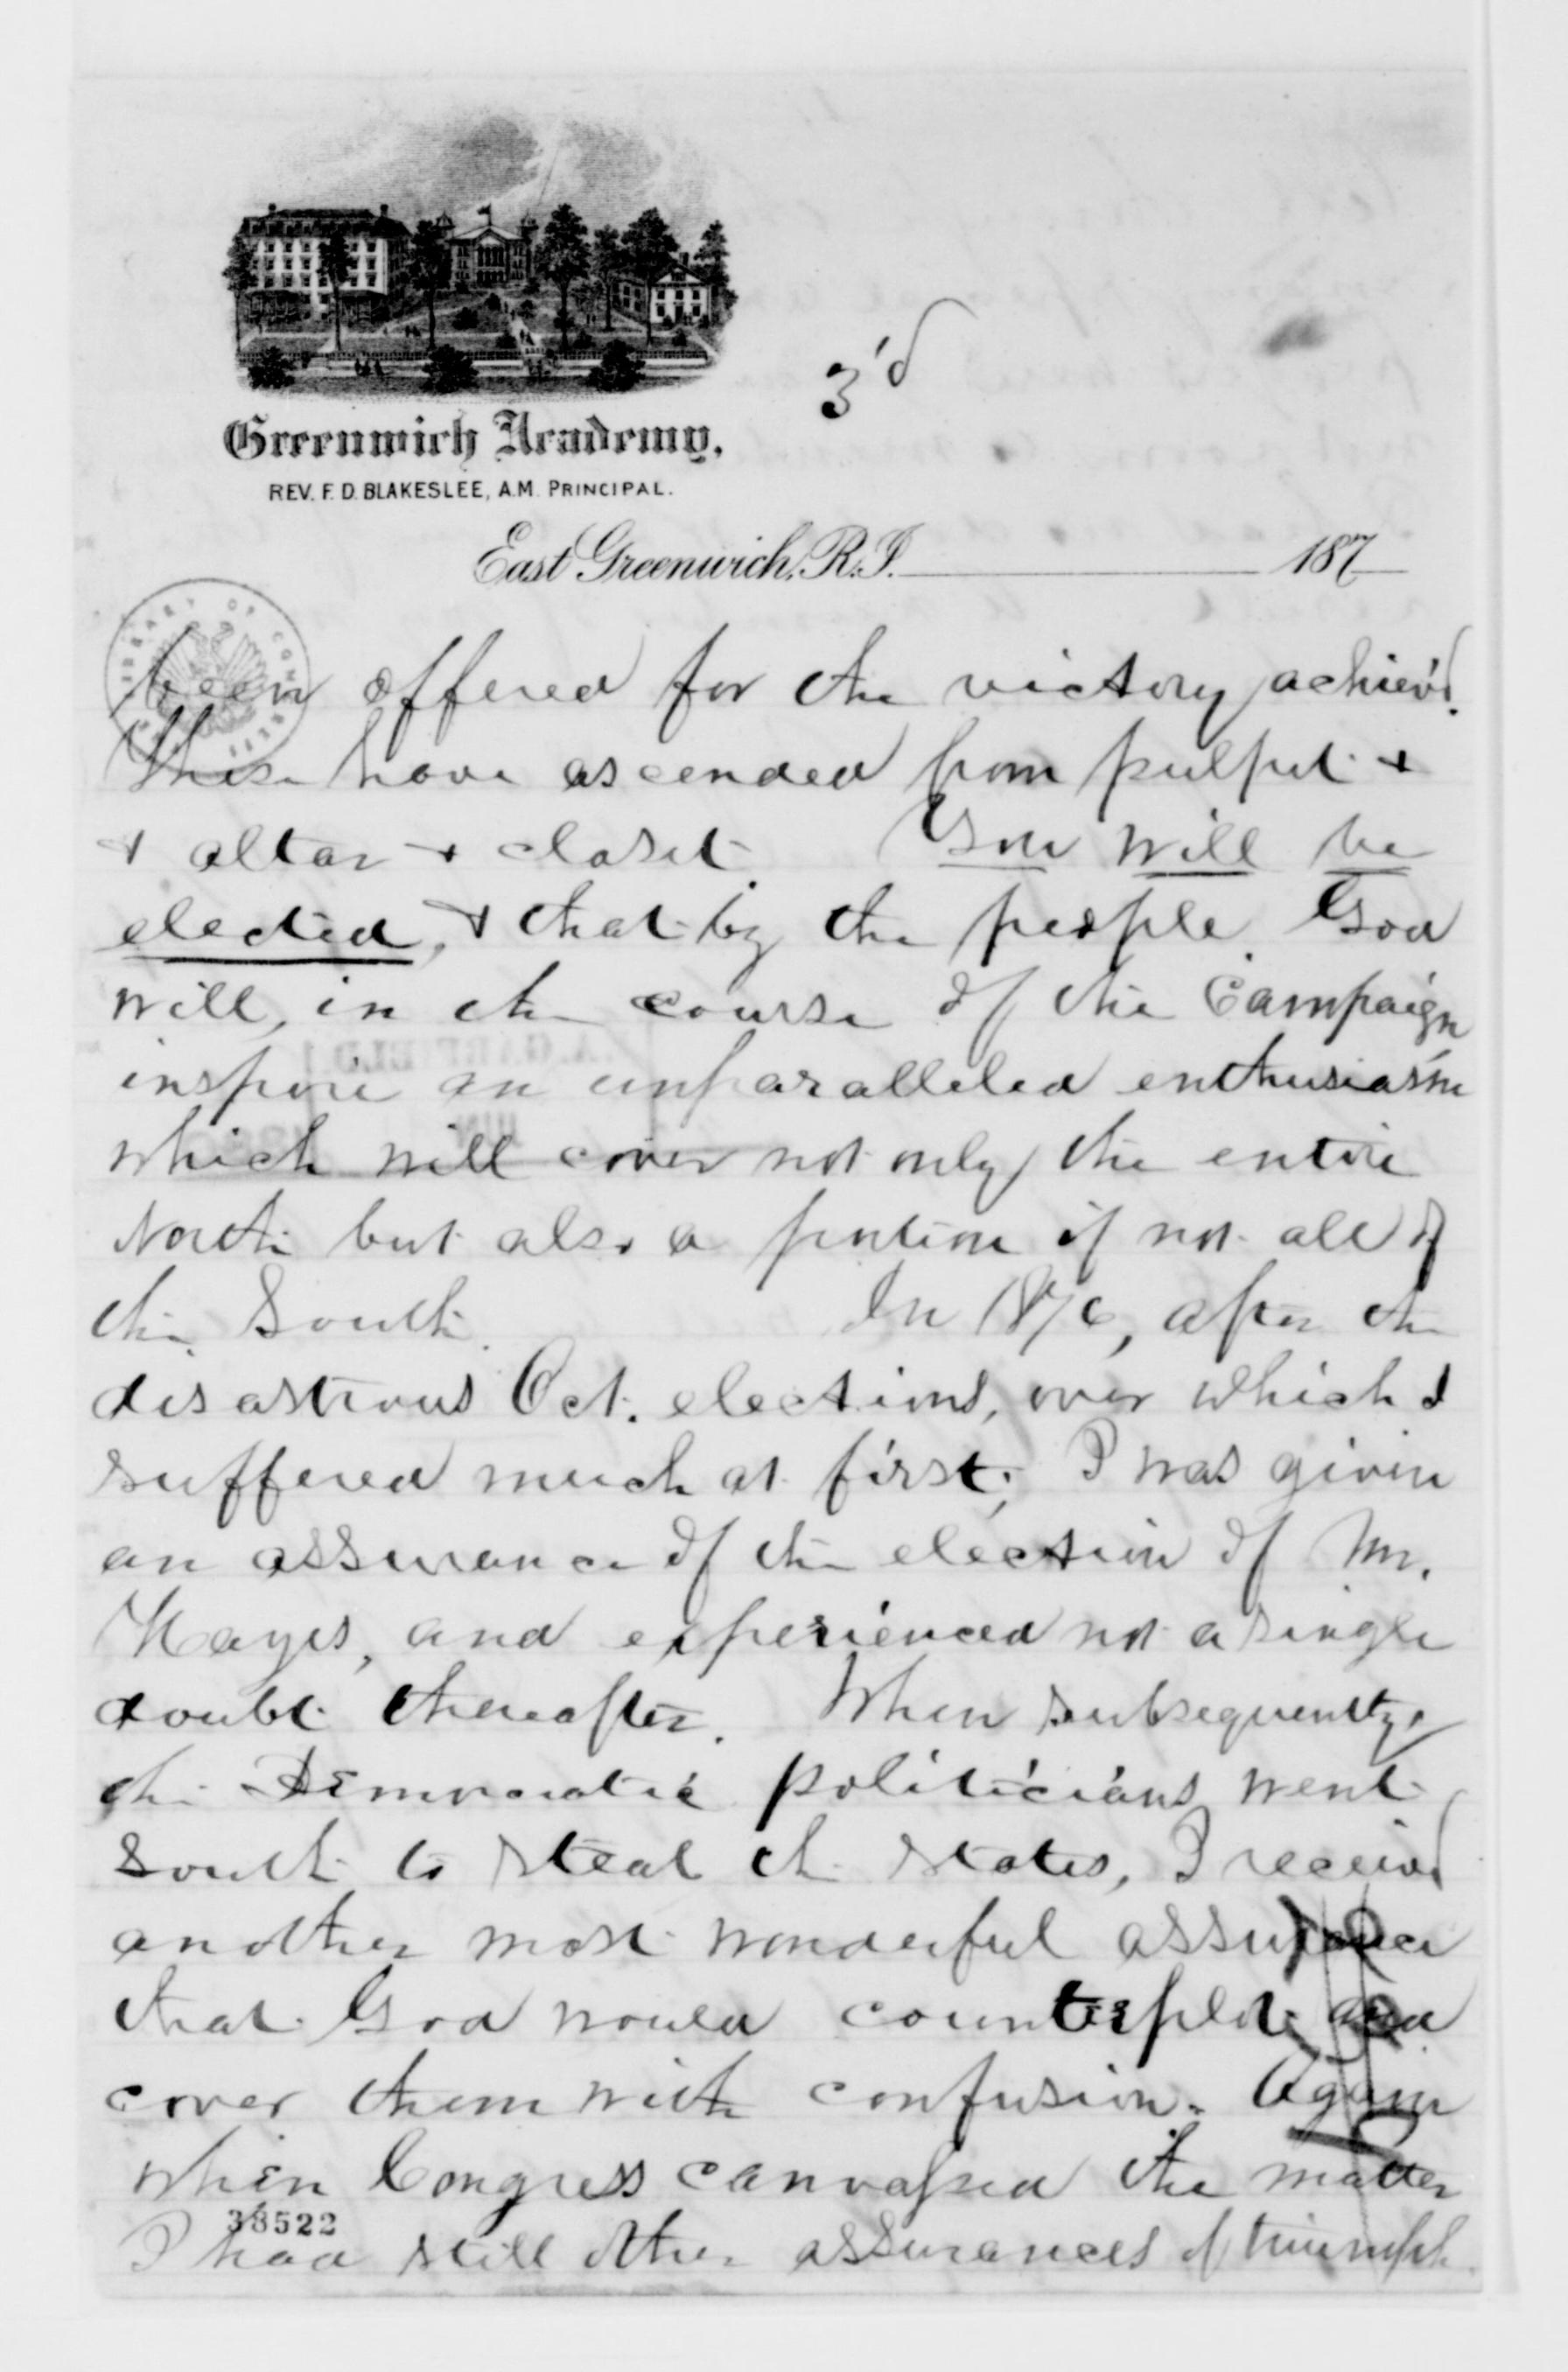 3'd
Greenwich Academy,
REV. F. D. BLAKESLEE, A.M. PRINCIPAL.
East Greenwich, R.I. 187
been offered for the victory achiev'd.
These have ascended from pulpit +
+ altar + closet. You will be
elected, + that by the people. God
will, in the course of the Campaign
inspire an unparalleled enthusiasm
which will cover not only the entire
North but also a portion if not all of
the South. In 1876, after the
disastrous Oct. elections, over which I
suffered much at first, I was given
an assurance of the election of Mr.
Hayes, and experienced not a single
doubt thereafter. When subsequently
the Democratic politicians went
South to steal the states, I receiv'd
another most wonderful assurance
that God would counterplot and
cover them with confusion. Again
when Congress canvassed the matter
38522
I had still other assurances of triumph.